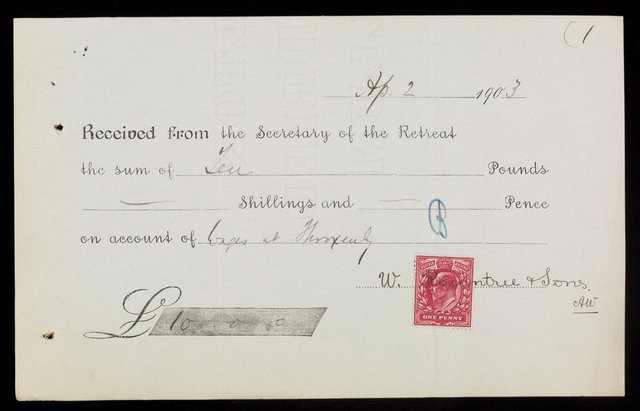 (1
Ap. 2 1903
Received from the Secretary of the Retreat
the sum of Ten Pounds
— Shillings and — Pence
on account of at
W. Rowntree & Sons.
AW
£10.0.0
ONE PENNY